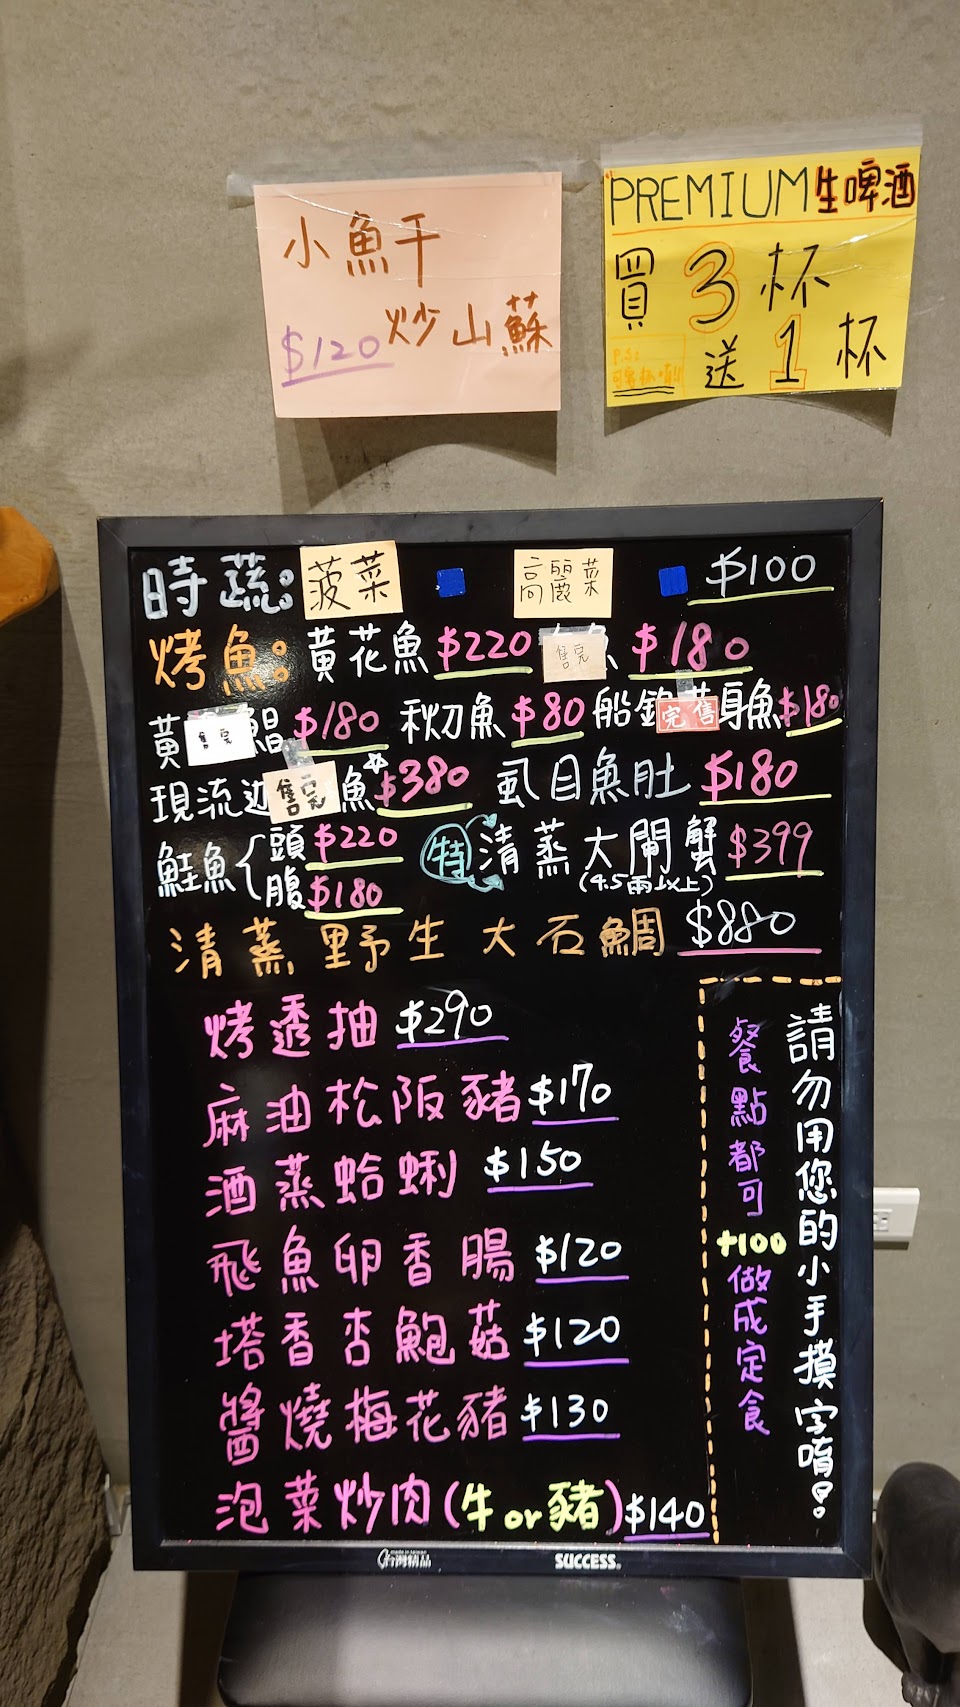 小魚干
炒山蘇
$120
PREMIUM生啤酒
買3杯
送1杯
P.S:
時蔬:菠菜 高麗菜 $100
烤魚:黃花魚$220 售完魚 $180
黃售完鯧$180 秋刀魚$80 船釣完售身魚$180
現流售完魚$380 虱目魚肚 $180
鮭魚{頭$220
腹$180
特 清蒸大閘蟹 $399
(4.5兩以上)
清蒸野生大石鯛 $880
烤透抽 $290
麻油松阪豬 $170
酒蒸蛤蜊 $150
飛魚卵香腸 $120
塔香杏鮑菇 $120
醬燒梅花豬 $130
泡菜炒肉(牛or豬) $140
請勿用您的小手摸字唷!
餐點都可+100做成定食
made in taiwan
台灣精品
SUCCESS